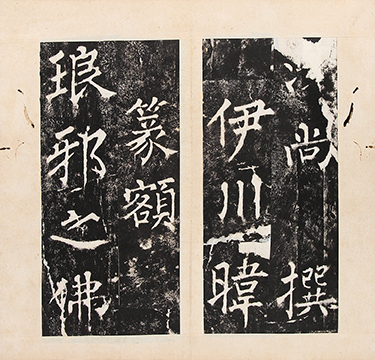 尚撰
伊川暐
篆額
琅邪之